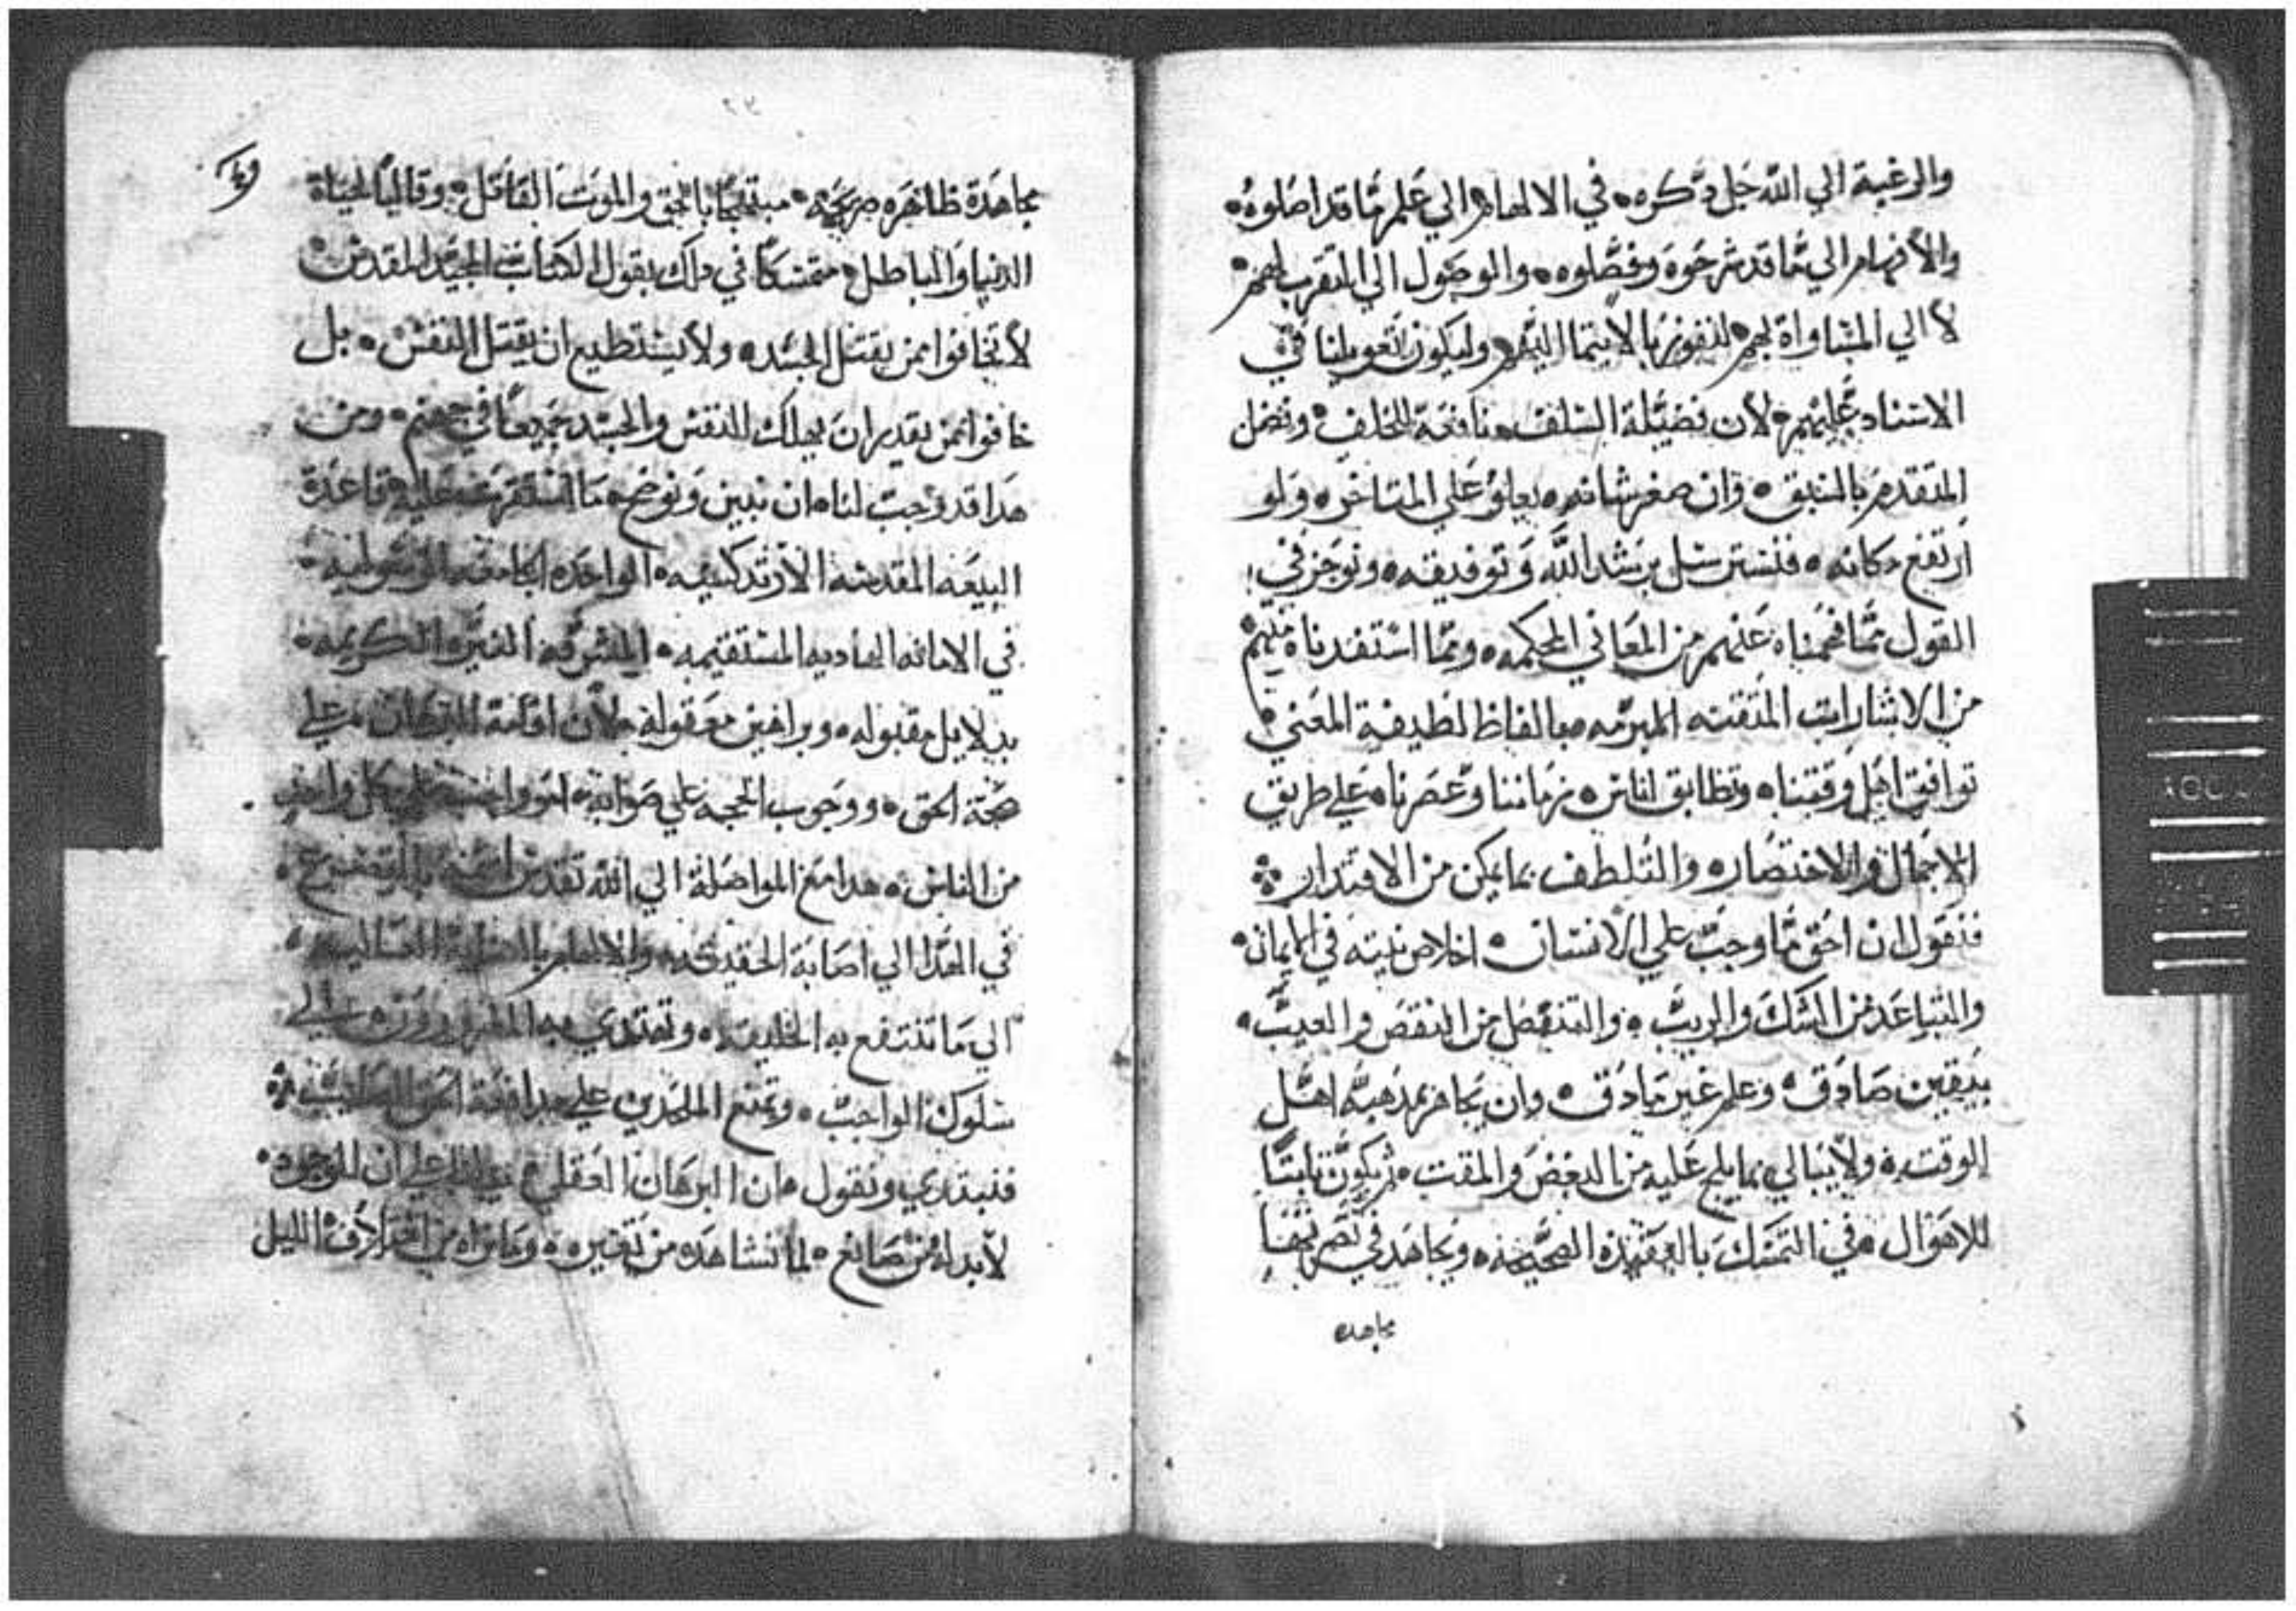 والرغبة الي الله جل ذكره في الالهام الي علم ما قد اصلوه
والأفهام الي ما قد شرحوه وفصلوه والوصول الي التقرب لهم
لا الي المساواة لهم لنفوز بالانتما اليهم وليكون تعويلنا في
الاسناد عليهم لأن فضيلة السلف نافعة للخلف وفضل
المتقدم بالسبق وان صغر شانه يعلو علي المتاخر ولو
ارتفع مكانه فنسترسل برشد الله وتوفيقه ونوجز في
القول مما فهمناه عنهم من المعاني المحكمه ومما استفدناه منهم
من الاشارات المتقنه المبرمه بالفاظ لطيفة المعني
توافق اهل وقتنا وتطابق اناس زماننا وعصرنا علي طريق
الاجمال والاختصار والتلطف بما يمكن من الاقتدار
فنقول ان احق ما وجب علي الانسان اخلاص نيته في الايمان
والتباعد من الشك والريب والتنصل من النقص والعيب
بيقين صادق وعلم غير مادق وان يجاهر بمذهبه اهل
الوقت ولا يبالي بما يلج عليه من البغض والمقت ثم يكون ثابتا
للاهوال في التمسك بالعقيده الصحيحه ويجاهد في نصرتها
مجاهده
٢٣
مجاهدة ظاهره صريحه مبتهجا بالحق والموت القاتل وقاليا لحياة
الدنيا والباطل متمسكا في ذلك بقول الكتاب المجيد المقدس
لا تخافوا ممن يقتل الجسد ولا يستطيع ان يقتل النفس بل
خافوا ممن يقدر ان يهلك النفس والجسد جميعا في جهنم ومن
هذا قد وجب لنا ان نبين ونوضح ما استقرت عليه قاعدة
البيعه المقدسه الارتدكسيه الواحده الجامعه الرسوليه
في الامانه الهاديه المستقيمه المشرفه النيره الكريمه
بدلايل مقبوله وبراهين معقوله لأن اقامة البرهان علي
صحة الحق ووجوب الحجه علي صوابه امر واجب علي كل واحد
من الناس هدا مع المواصلة الي الله تقدس اسمه بالتضرع
في الهدا الي اصابة الحقيقه والالهام
الي ما تنتفع به الخليقه وتهتدي به الي
سلوك الواجب وتمنع الملحدين علي مدافعة الحق
فنبتدي ونقول ان البرهان العقلي علي ان الموجود
لا بد له من صانع لما نشاهده من تغيره وما نراه من اختلاف الليل